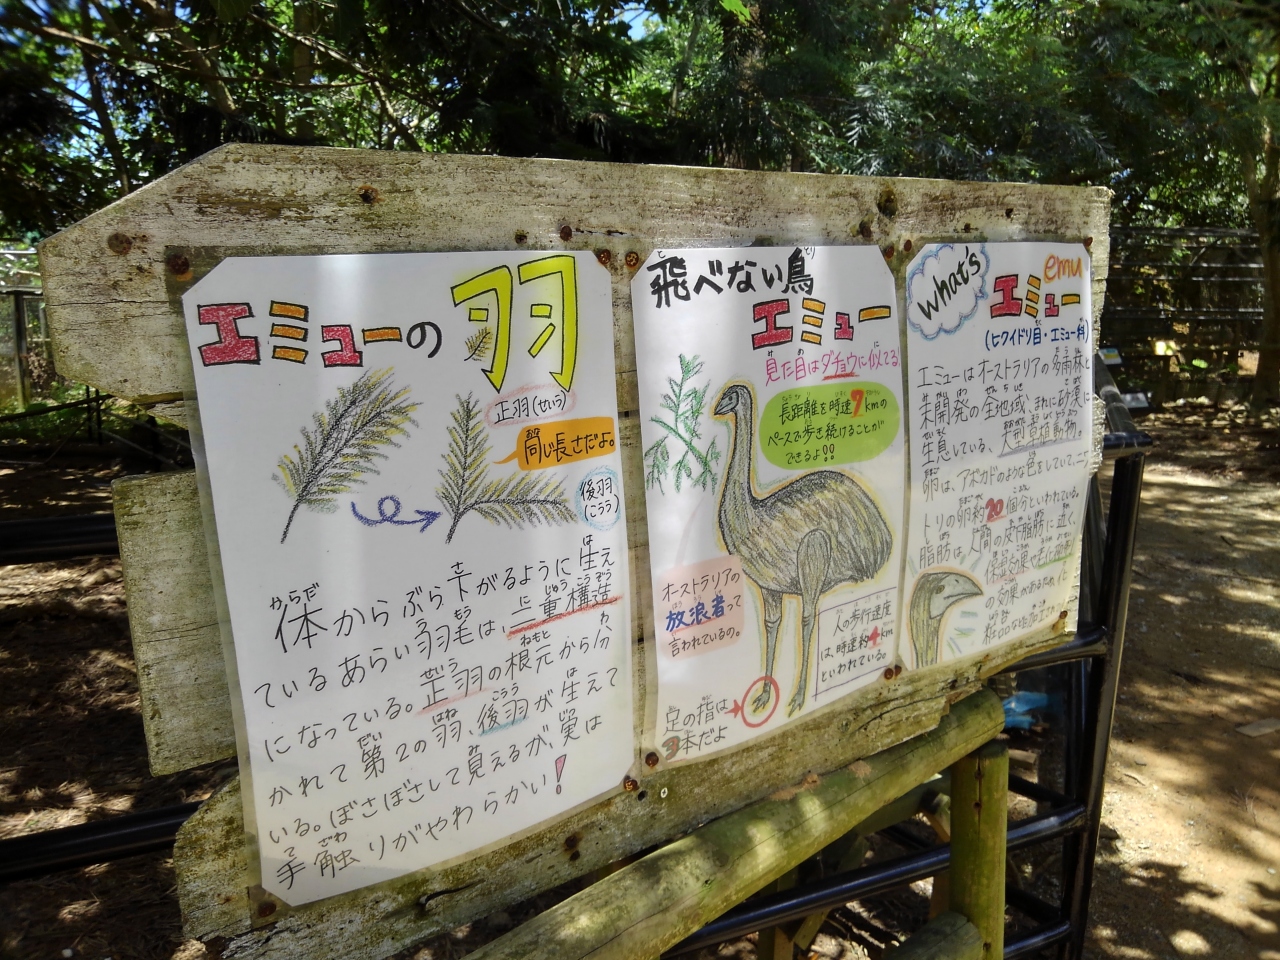 エミューの羽
正羽(せいう)
同じ長さだよ。
後羽
(こうう)
体からぶら下がるように生え
ているあらい羽毛は、二重構造
になっている。正羽の根元から分
かれて第2の羽、後羽が生えて
いる。ぼさぼさして見えるが、実は
手触りがやわらかい!
飛べない鳥
エミュー
見た目はダチョウに似てる
長距離を時速7kmの
ペースで歩き続けることが
できるよ!!
オーストラリアの
放浪者って
言われているの。
人の歩行速度
は、時速約4km
といわれている。
足の指は
3本だよ
What's
emu
エミュー
(ヒクイドリ目・エミュー科)
エミューはオーストラリアの多雨林と
未開発の全地域、まれに砂漠に
生息している、大型草植動物。
卵は、アボカドのような色をしていて、ニワ
トリの卵約20個分といわれている。
脂肪は、人間の皮下脂肪に近く、
保湿効果や
の効果があるため、